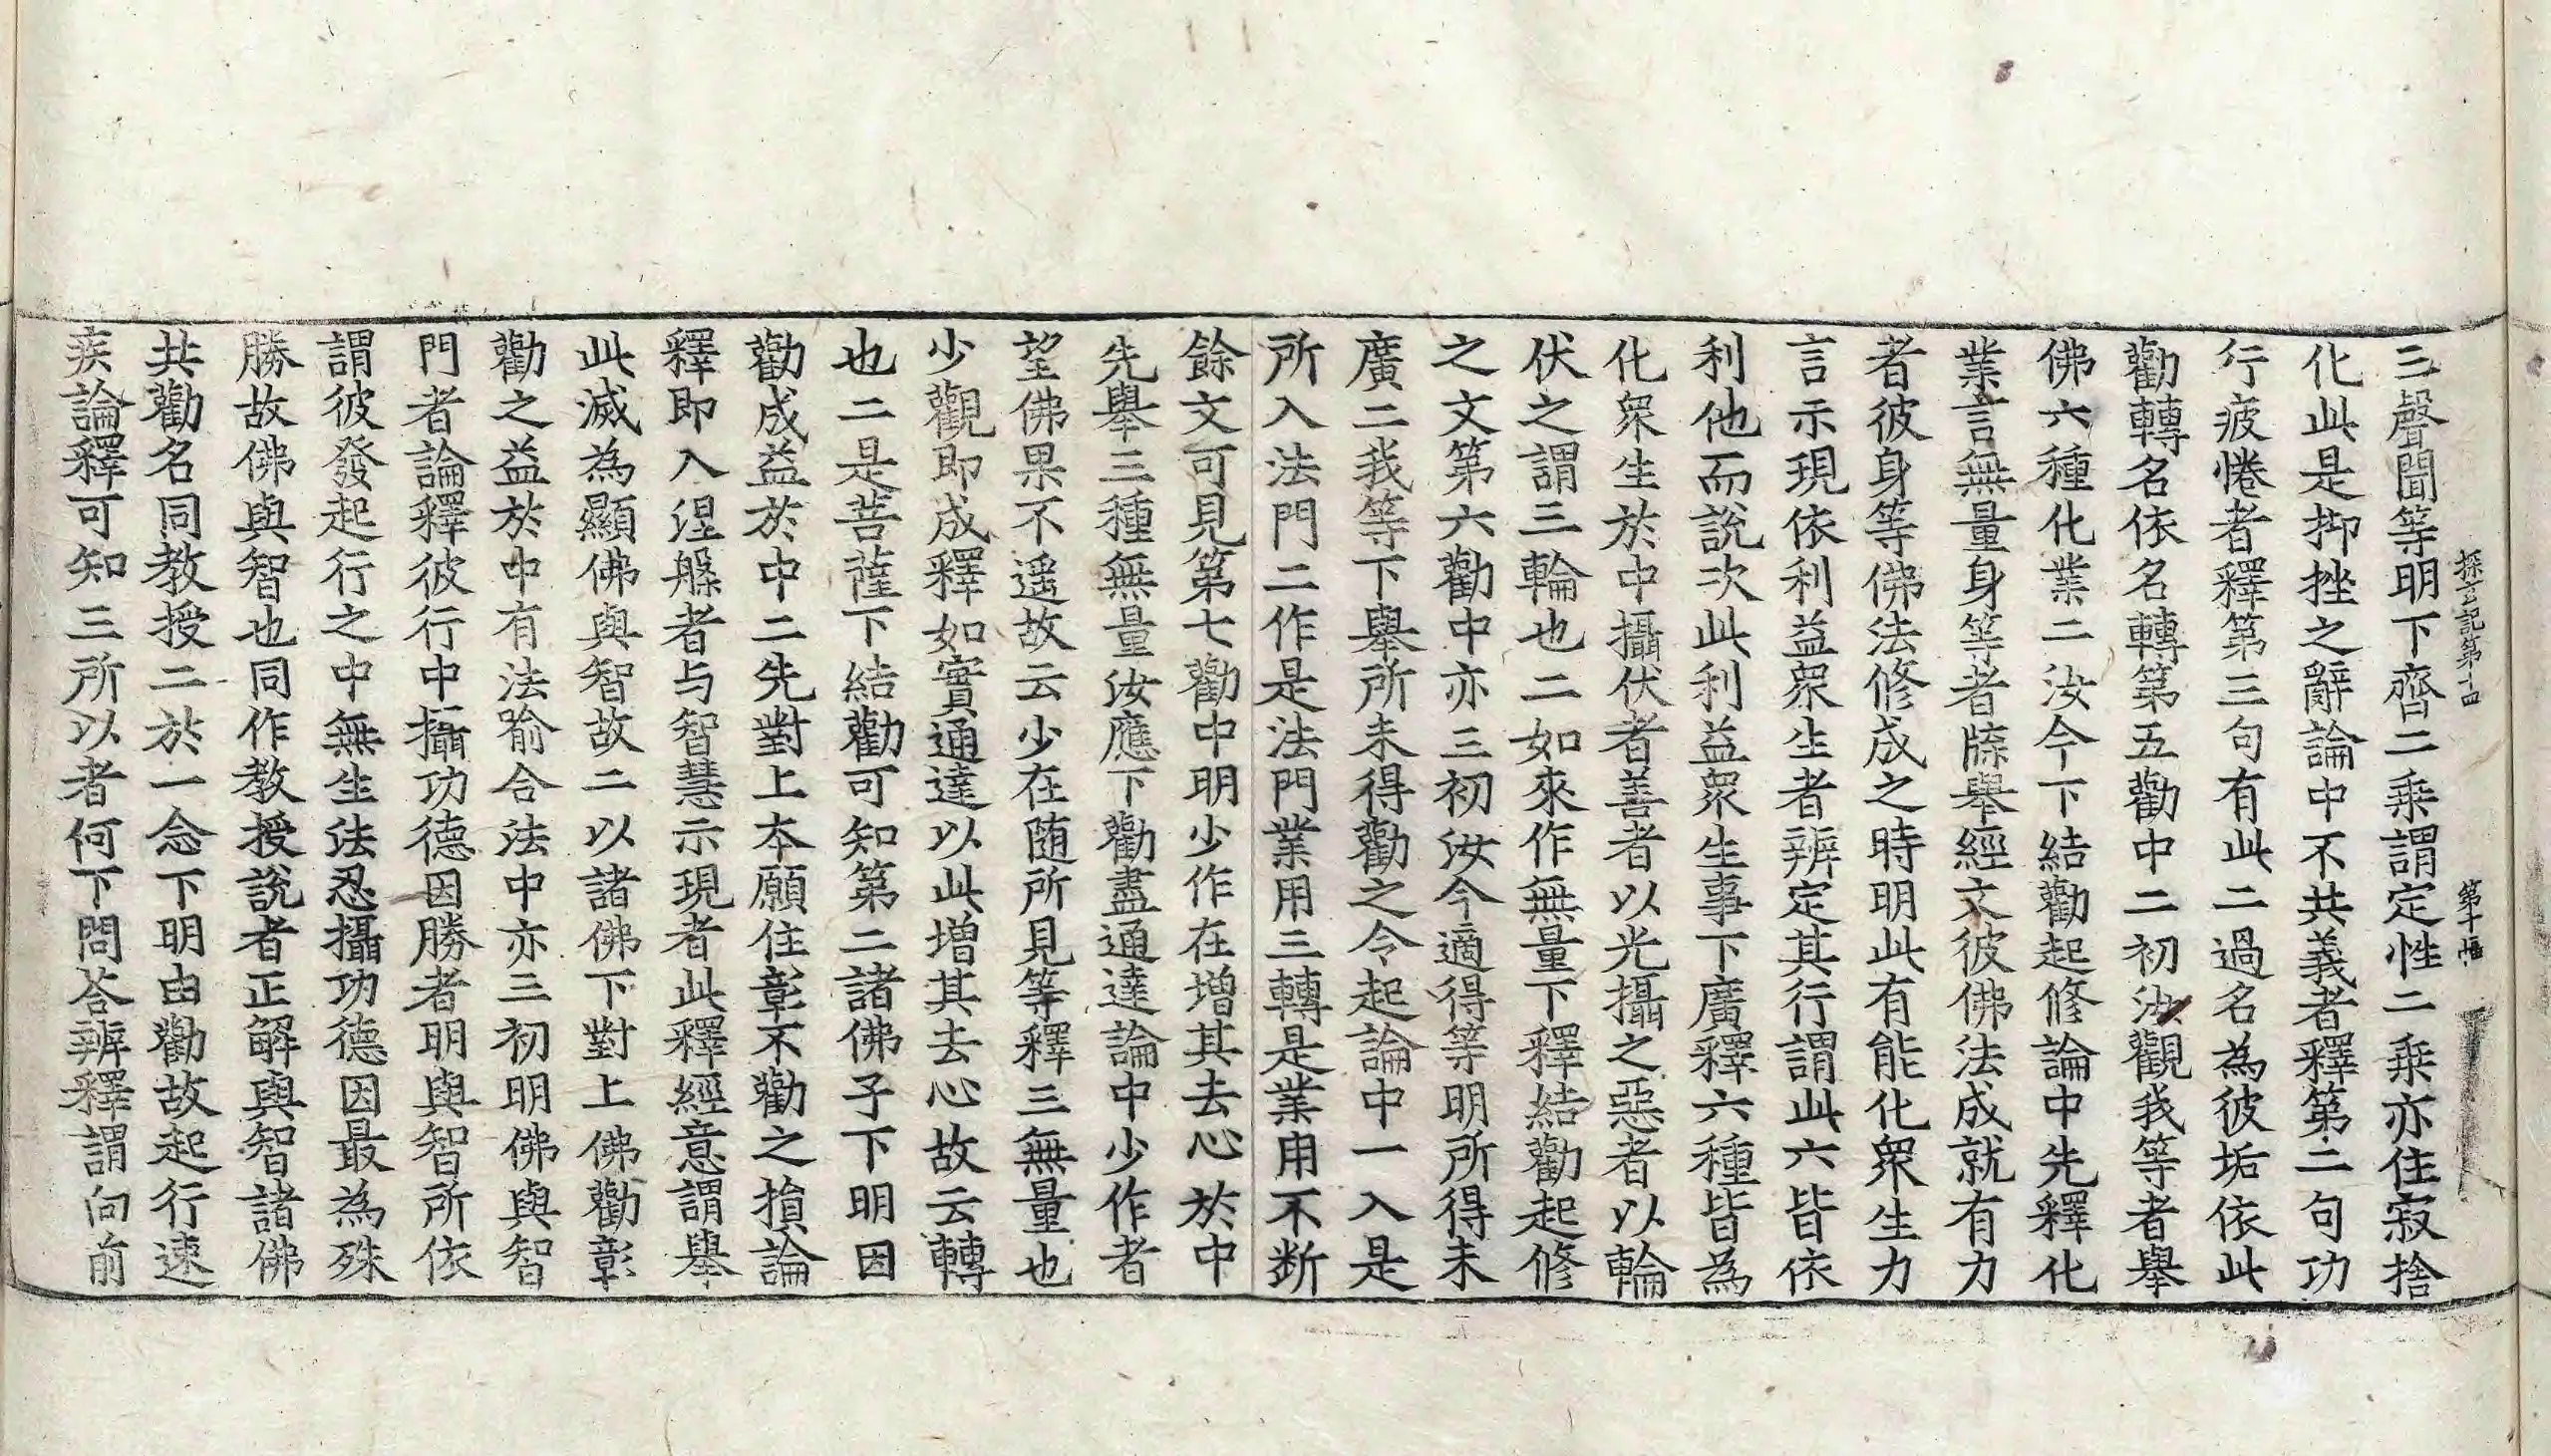 三聲聞等明下齊二乘謂定性二乘亦住寂捨
化此是抑挫之辭論中不共義者釋第二句功
行疲惓者釋第三句有此二過名為彼垢依此
勸轉名依名轉第五勸中二初汝觀我等者舉
佛六種化業二汝今下結勸起修論中先釋化
業言無量身等者牒舉經文彼佛法成就有力
者彼身等佛法修成之時明此有能化眾生力
言示現依利益眾生者辨定其行謂此六皆依
利他而說次此利益眾生事下廣釋六種皆為
化眾生於中攝伏者善者以光攝之惡者以輪
伏之謂三輪也二如來作無量下釋結勸起修
之文第六勸中亦三初汝今適得等明所得未
廣二我等下舉所未得勸之令起論中一入是
所入法門二作是法門業用三轉是業用不断
餘文可見第七勸中明少作在增其去心於中
先舉三種無量汝應下勸盡通達論中少作者
望佛果不遥故云少在随所見等釋三無量也
少觀即成釋如實通達以此增其去心故云轉
也二是菩薩下結勸可知第二諸佛子下明因
勸成益於中二先對上本願住彰不勸之損論
釋即入涅槃者与智慧示現者此釋經意謂舉
此滅為顯佛與智故二以諸佛下對上佛勸彰
勸之益於中有法喻合法中亦三初明佛與智
門者論釋彼行中攝功德因勝者明與智所依
謂彼發起行之中無生法忍攝功德因最為殊
勝故佛與智也同作教授說者正解與智諸佛
共勸名同教授二於一念下明由勸故起行速
疾論釋可知三所以者何下問答辨釋謂向前
探玄記第十四 第十幅